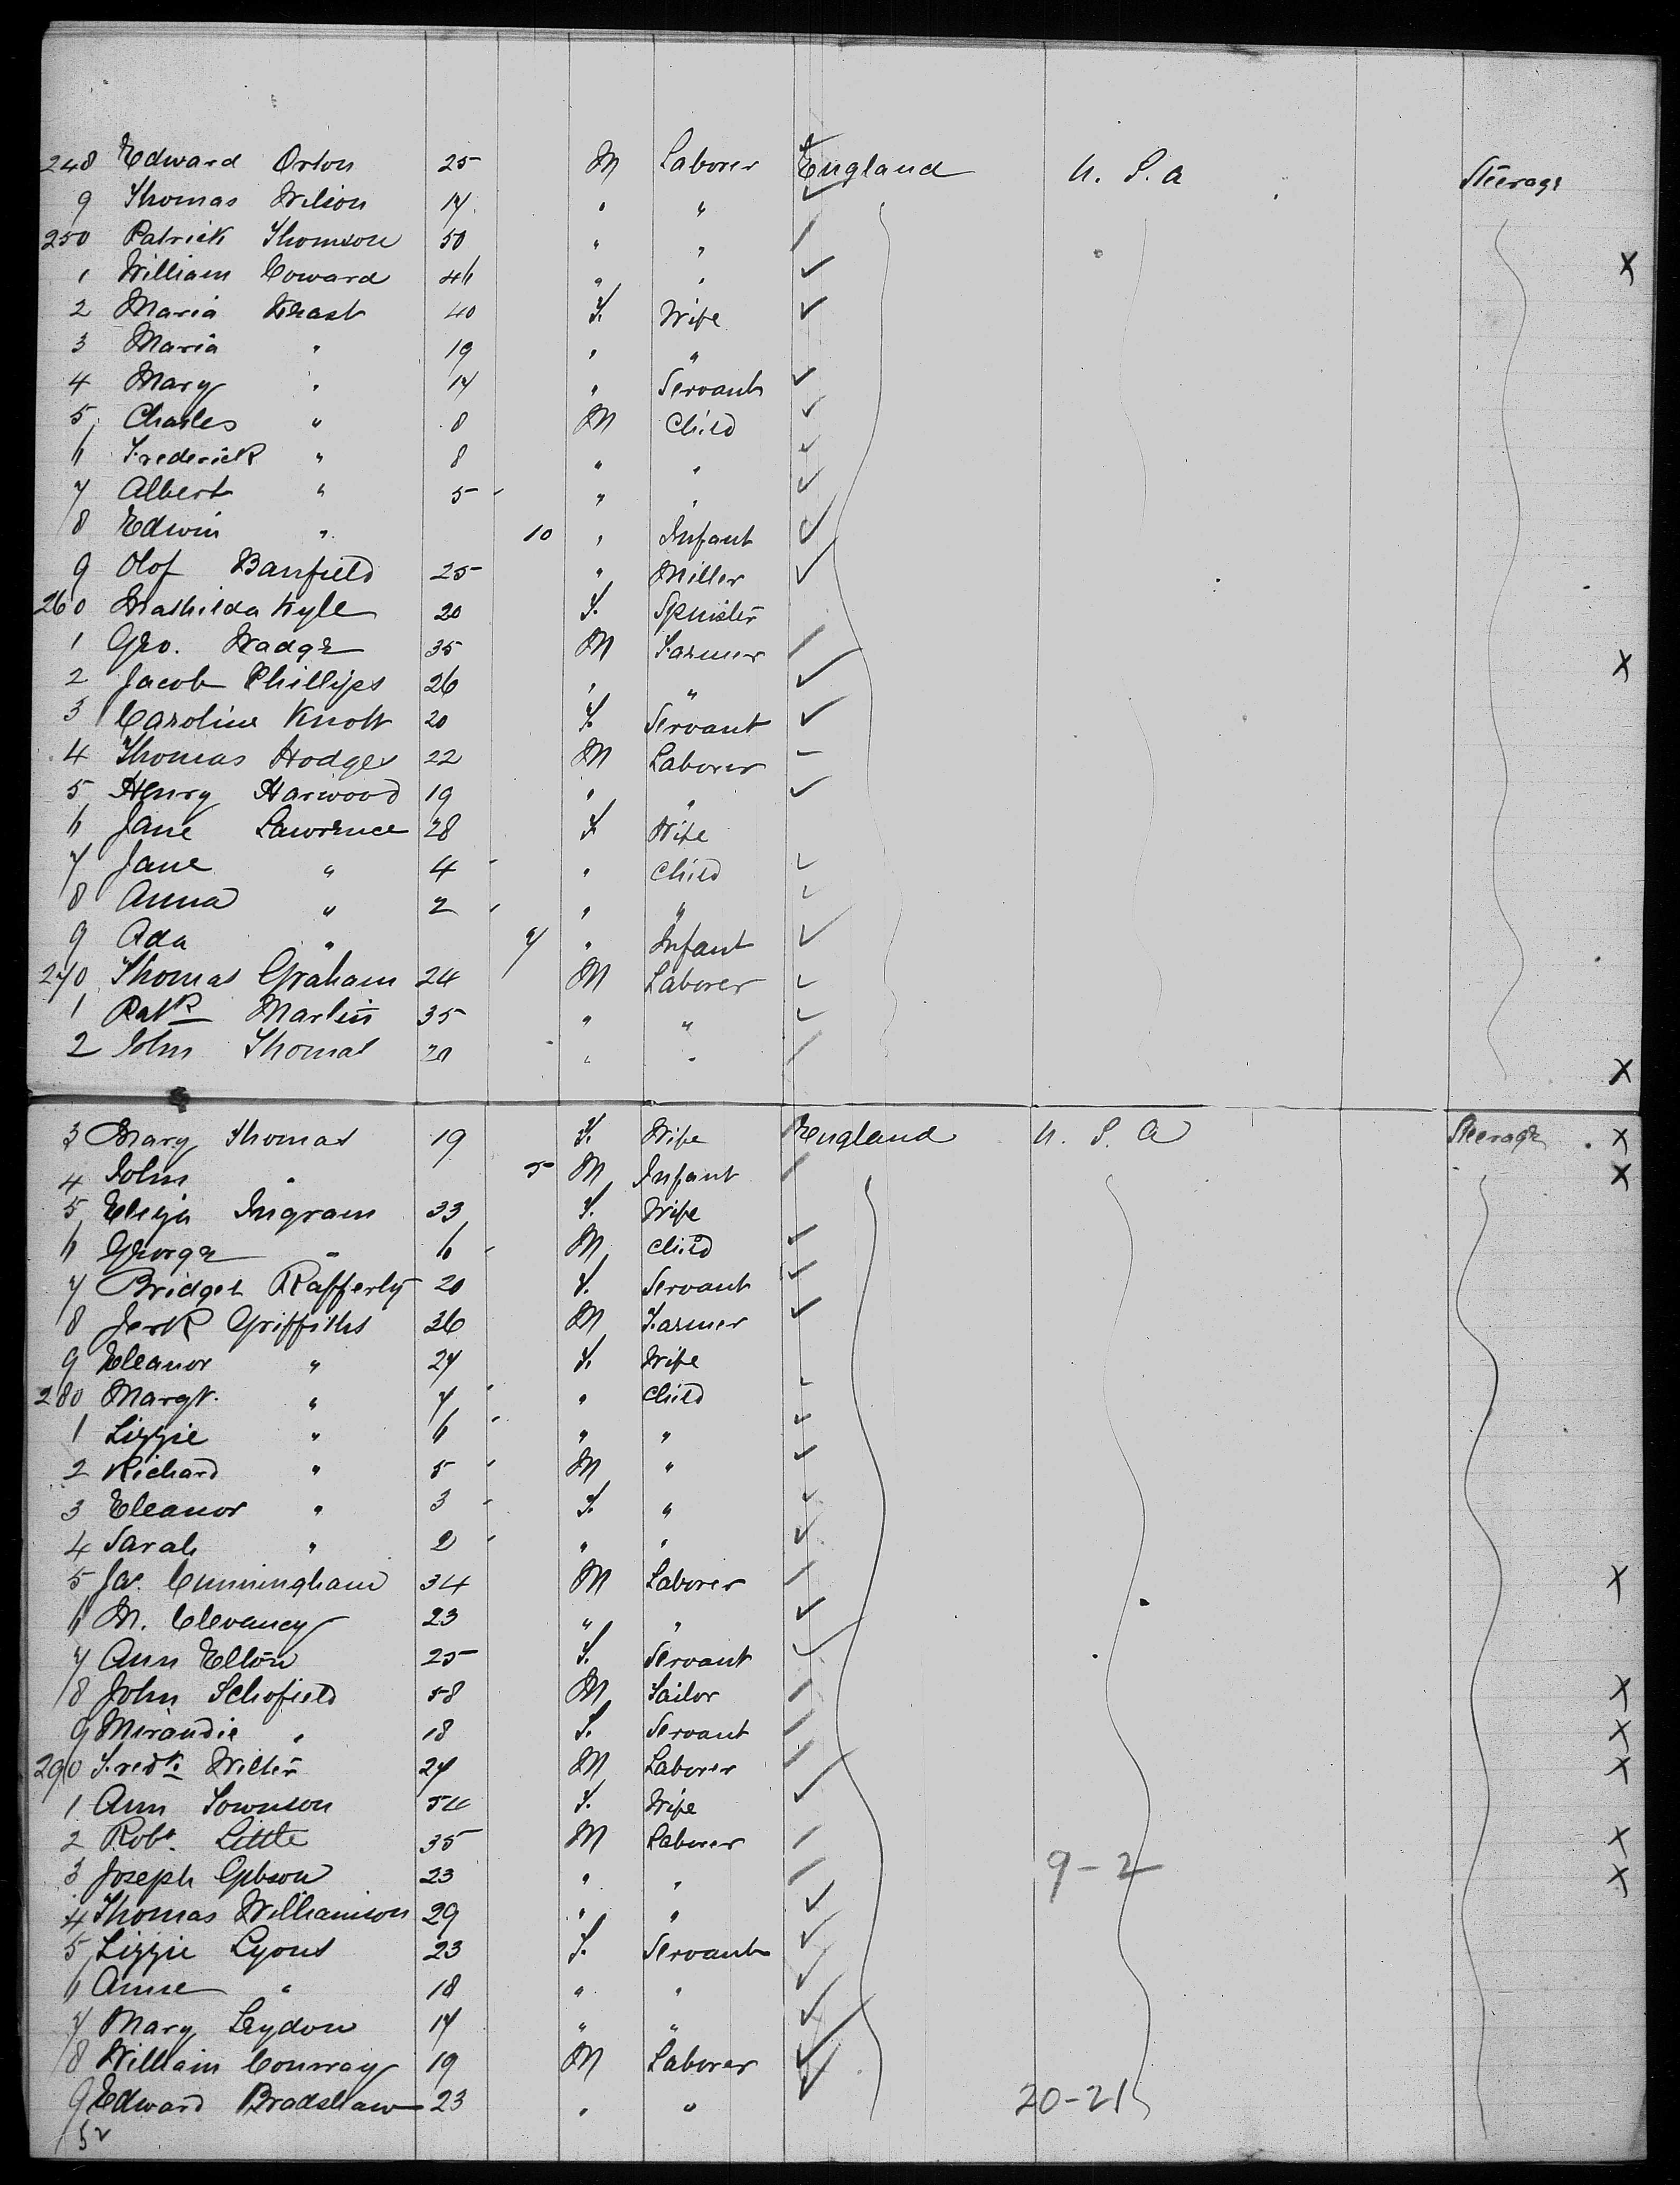 248 Edward Orton 25 M Laborer England U. S. A Steerage
9 Thomas Wilson 17 " "
250 Patrick Thomson 50 " "
1 William Coward 46 " " X
2 Maria 40 F. Wife
3 Maria " 19 " "
4 Mary " 17 " Servant
5 Charles " 8 M Child
6 Frederick " 8 " "
7 Albert " 5 " "
8 Edwin " 10 " Infant
9 Olof Banfield 25 " Miller
260 Mathilda Kyle 20 F. Spinster
1 Geo. Wadge 35 M Farmer X
2 Jacob Phillips 26 " "
3 Caroline Knott 20 F. Servant
4 Thomas Hodges 22 M Laborer
5 Henry Harwood 19 " "
6 Jane Lawrence 28 F Wife
7 Jane " 4 " Child
8 Anna " 2 " "
9 Ada " 7 " Infant
270 Thomas Graham 24 M Laborer
1 Patk Martin 35 " "
2 John Thomas 20 " " X
3 Mary Thomas 19 F. Wife England U. S. A Steerage X
4 John " 5 M Infant X
5 Eliza Ingram 33 F. Wife
6 George " 6 M Child
7 Bridget Rafferty 20 F. Servant
8 Griffiths 36 M Farmer
9 Eleanor " 27 F. Wife
280 Margt. " 7 " Child
1 Lizzie " 6 " "
2 Richard " 5 M "
3 Eleanor " 3 F. "
4 Sarah " 2 " "
5 Jas. Cunningham 34 M Laborer X
6 M. Clevancy 23 " "
7 Ann Elton 25 F. Servant
8 John Schofield 58 M Tailor X
9 Mirandie " 18 F. Servant X
290 Fredk. 27 M Laborer X
1 Ann Townson 54 F. Wife
2 Robt. Little 35 M Laborer X
3 Joseph Gibson 23 " " 9-2 X
4 Thomas Williamson 29 " "
5 Lizzie Lyons 23 F. Servant
6 Anne " 18 " "
7 Mary Leydon 17 " "
8 William Conway 19 M Laborer
9 Edward Bradshaw 23 " " 20-21
52